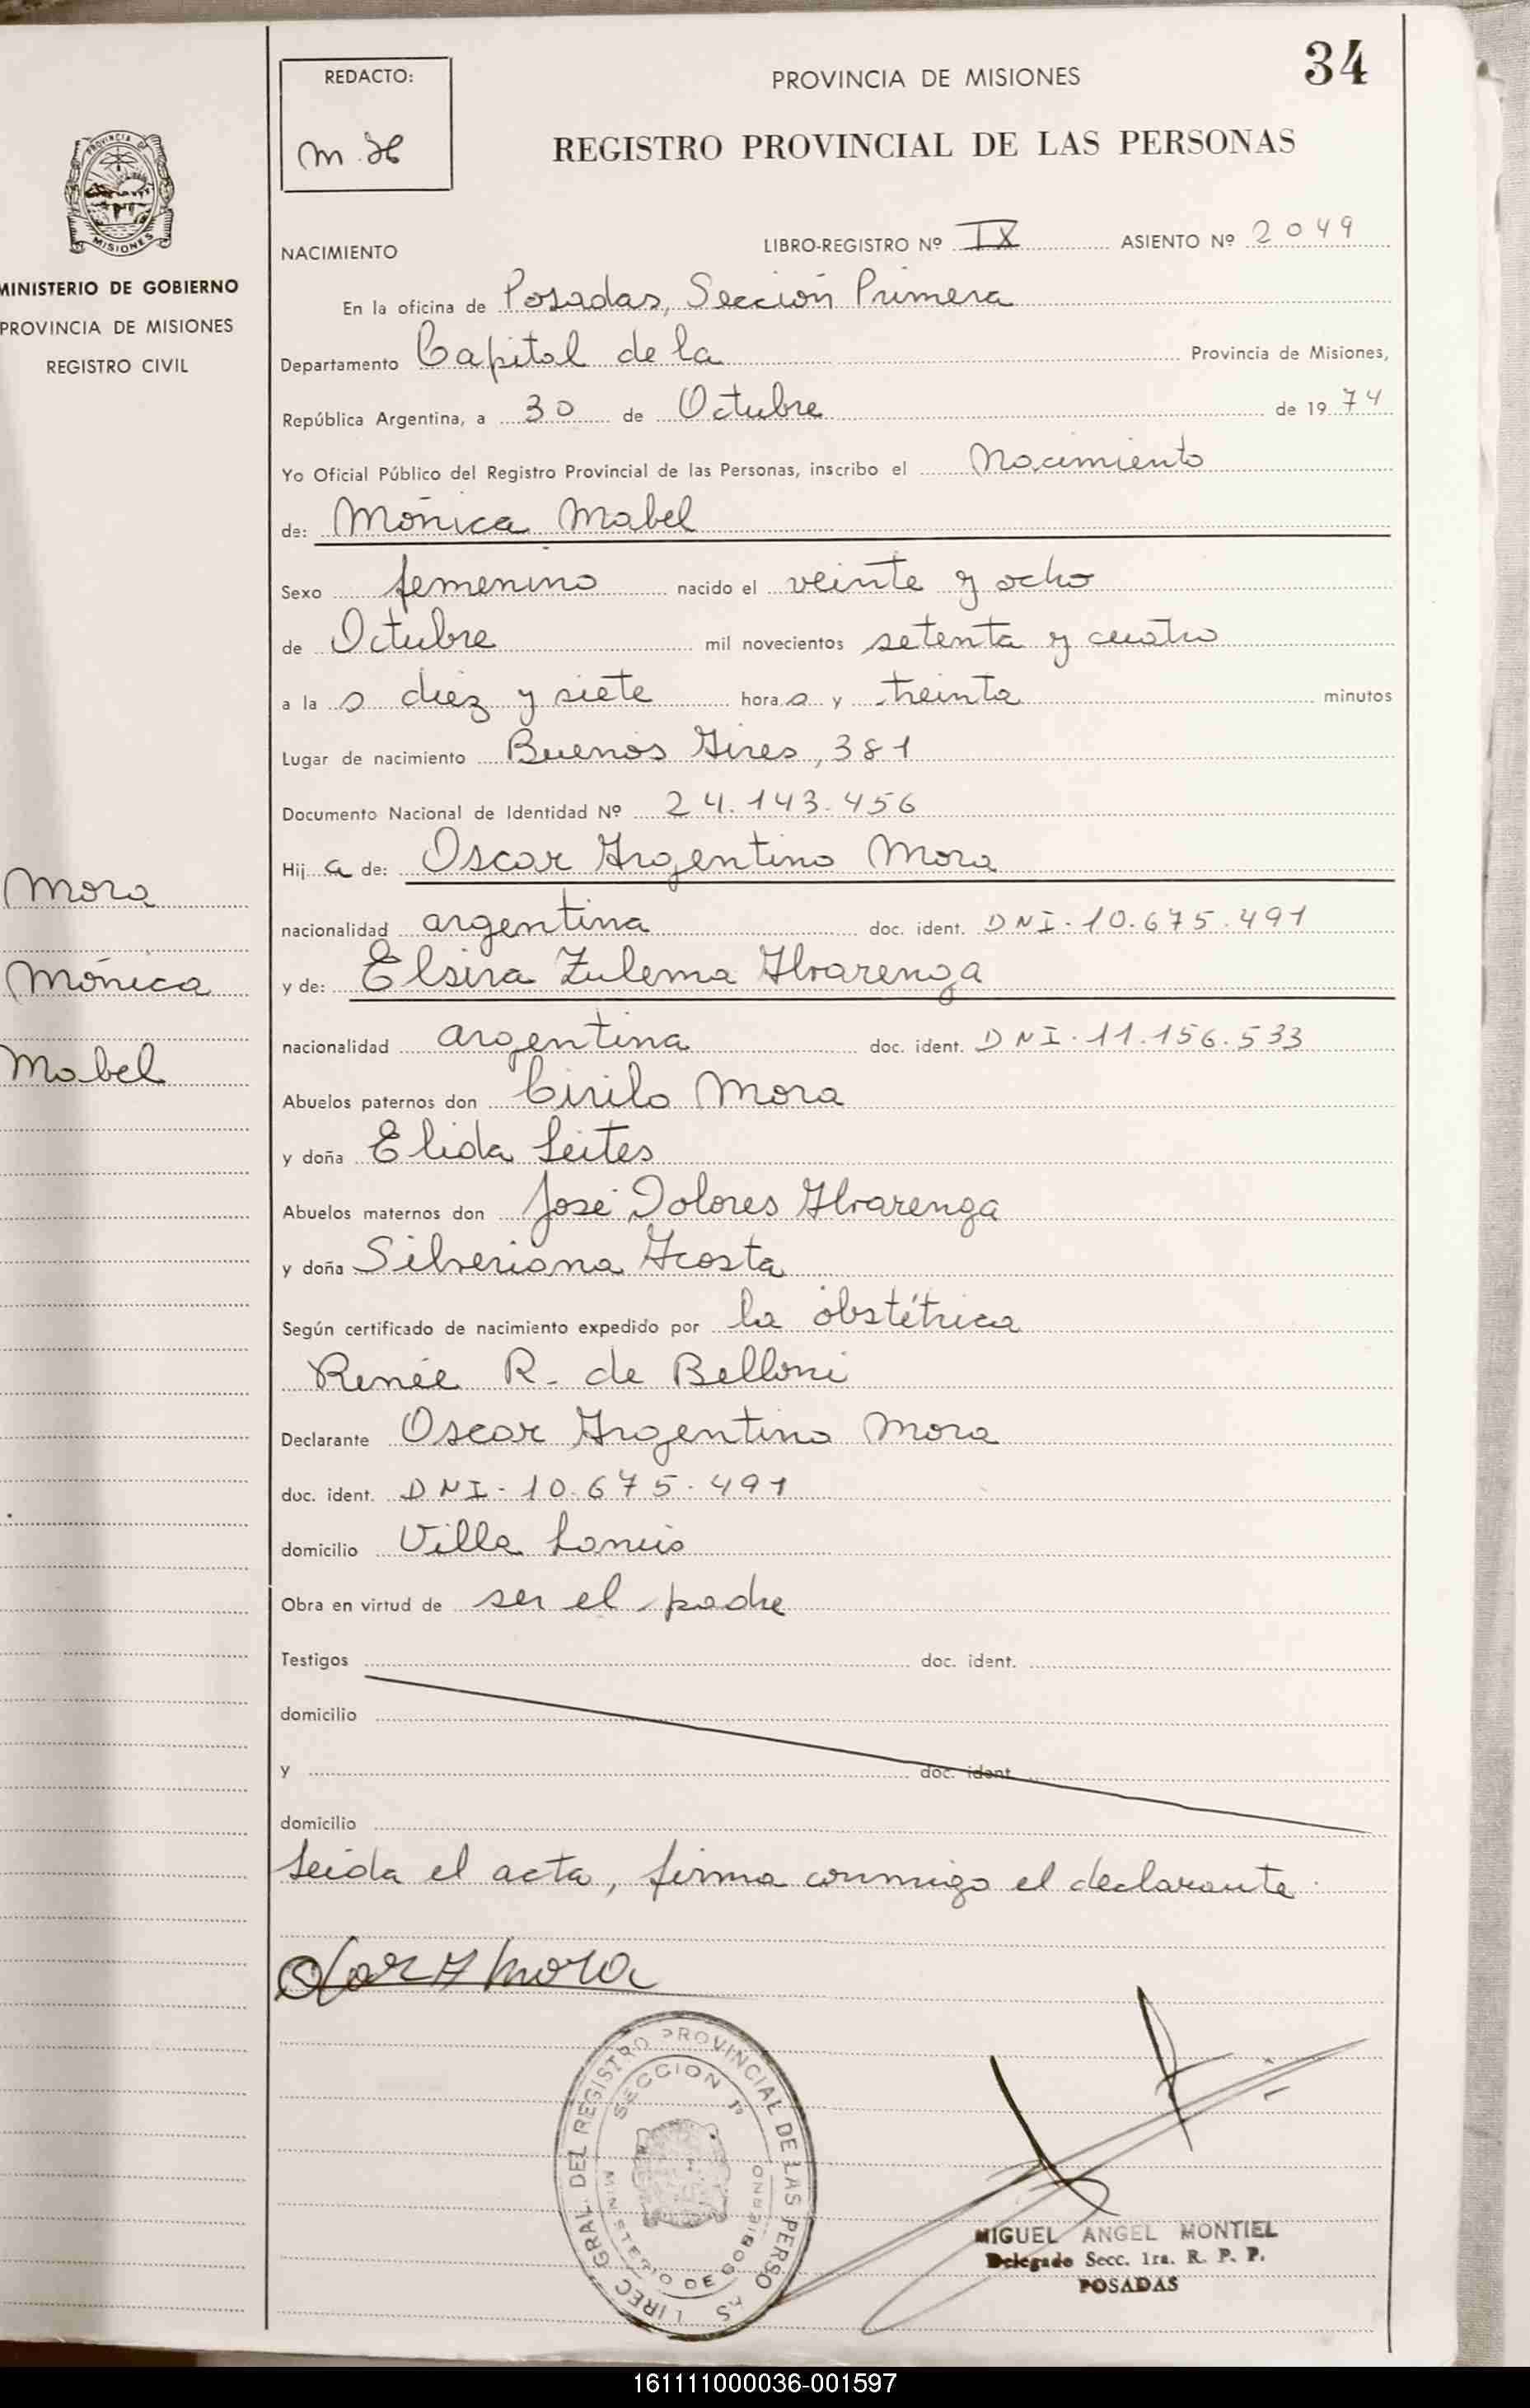 34
REDACTO:
M. H
PROVINCIA DE MISIONES
REGISTRO PROVINCIAL DE LAS PERSONAS
PROVINCIA DE
MISIONES
MINISTERIO DE GOBIERNO
PROVINCIA DE MISIONES
REGISTRO CIVIL
NACIMIENTO
LIBRO-REGISTRO Nº IX ASIENTO Nº 2049
En la oficina de Posadas, Sección Primera
Departamento Capital de la Provincia de Misiones,
República Argentina, a 30 de Octubre de 19 74
Yo Oficial Público del Registro Provincial de las Personas, inscribo el Nacimiento
de: Mónica Mabel
Sexo femenino nacido el veinte y ocho
de Octubre mil novecientos setenta y cuatro
a la s diez y siete hora s y treinta minutos
Lugar de nacimiento Buenos Aires, 381
Documento Nacional de Identidad Nº 24.143.456
Hij a de: Oscar Argentino Mora
nacionalidad argentina doc. ident. DNI-10.675.491
y de: Elsira Zulema Alvarenga
nacionalidad argentina doc. ident. DNI-11.156.533
Abuelos paternos don Cirilo Mora
y doña Elida Leites
Abuelos maternos don José Dolores Alvarenga
y doña Silveriana Acosta
Según certificado de nacimiento expedido por la obstétrica
Renée R. de Belloni
Declarante Oscar Argentino Mora
doc. ident. DNI-10.675.491
domicilio Villa Lanús
Obra en virtud de ser el padre
Testigos doc. ident.
domicilio
y doc. ident.
domicilio
Leída el acta, firma conmigo el declarante.
Mora
Mónica
Mabel
Oscar A Mora
DIREC. GRAL. DEL REGISTRO PROVINCIAL DE LAS PERSONAS
SECCION 1º
MINISTERIO DE GOBIERNO
MIGUEL ANGEL MONTIEL
Delegado Secc. 1ra. R. P. P.
POSADAS
161111000036-001597